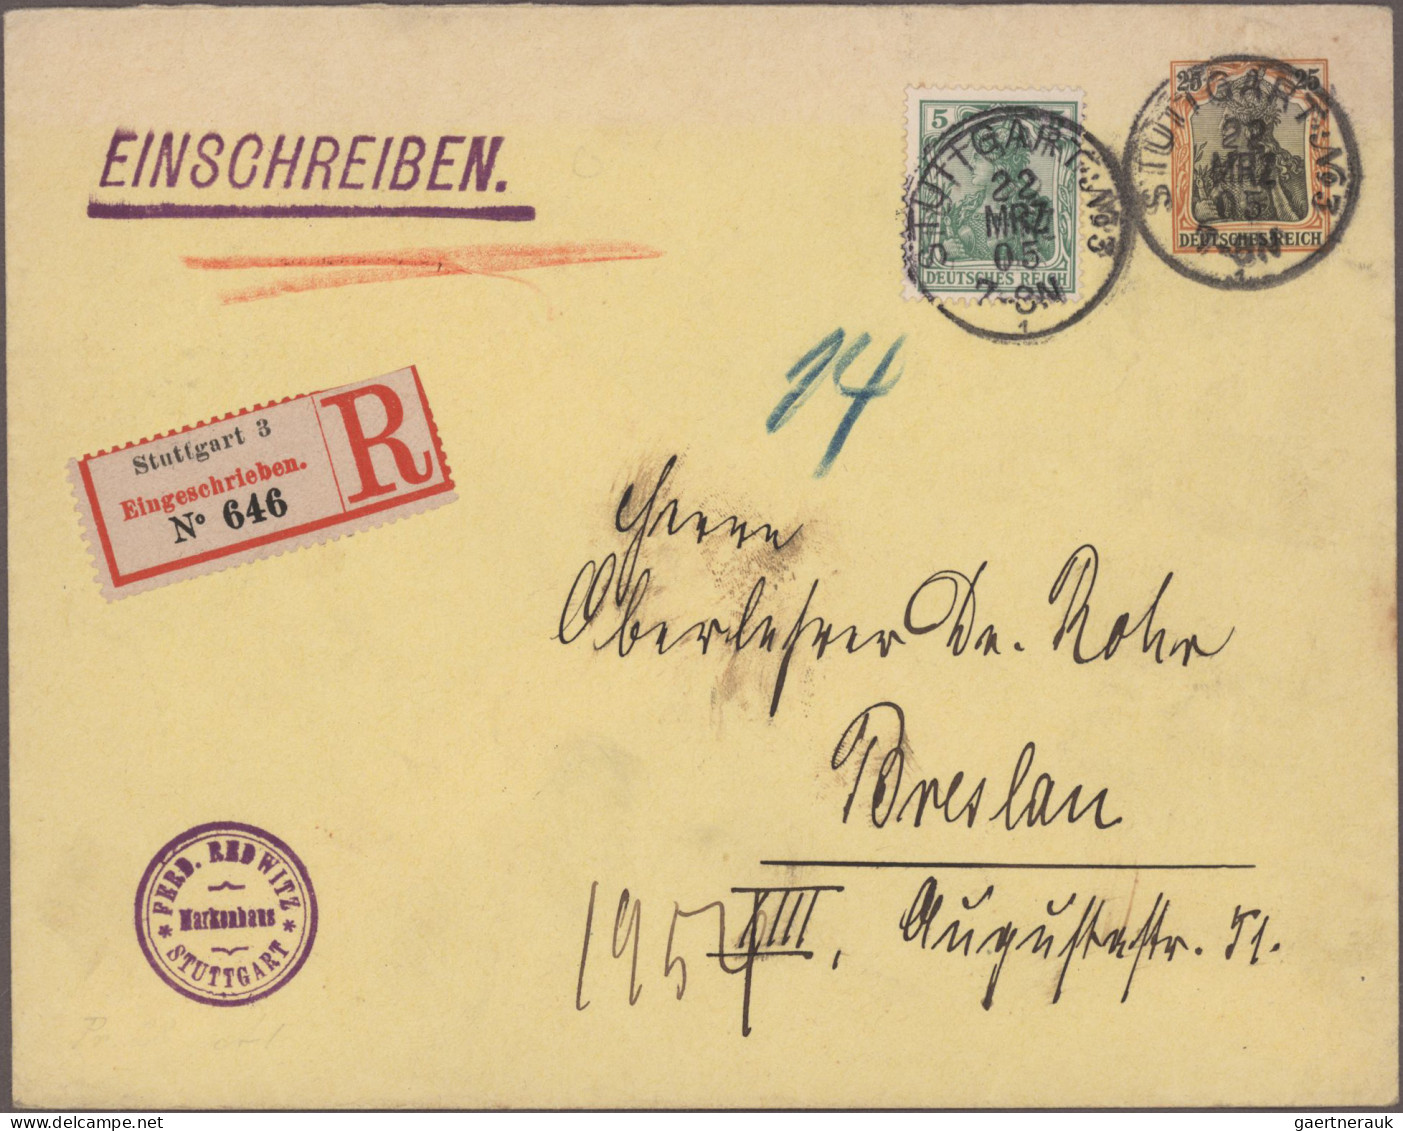 EINSCHREIBEN.
5
DEUTSCHES REICH
STUTTGART.No3
22
MRZ
05
7-8N
1
25 25
DEUTSCHES REICH
STUTTGART.No3
22
MRZ
05
7-8N
1
14
Stuttgart 3
Eingeschrieben.
No 646
R
Herrn
Oberlehrer Dr. Rohr
Breslau
XIII, Augustastr. 51.
195
* FERD. REDWITZ *
Markenhaus
STUTTGART
gaertnerauk